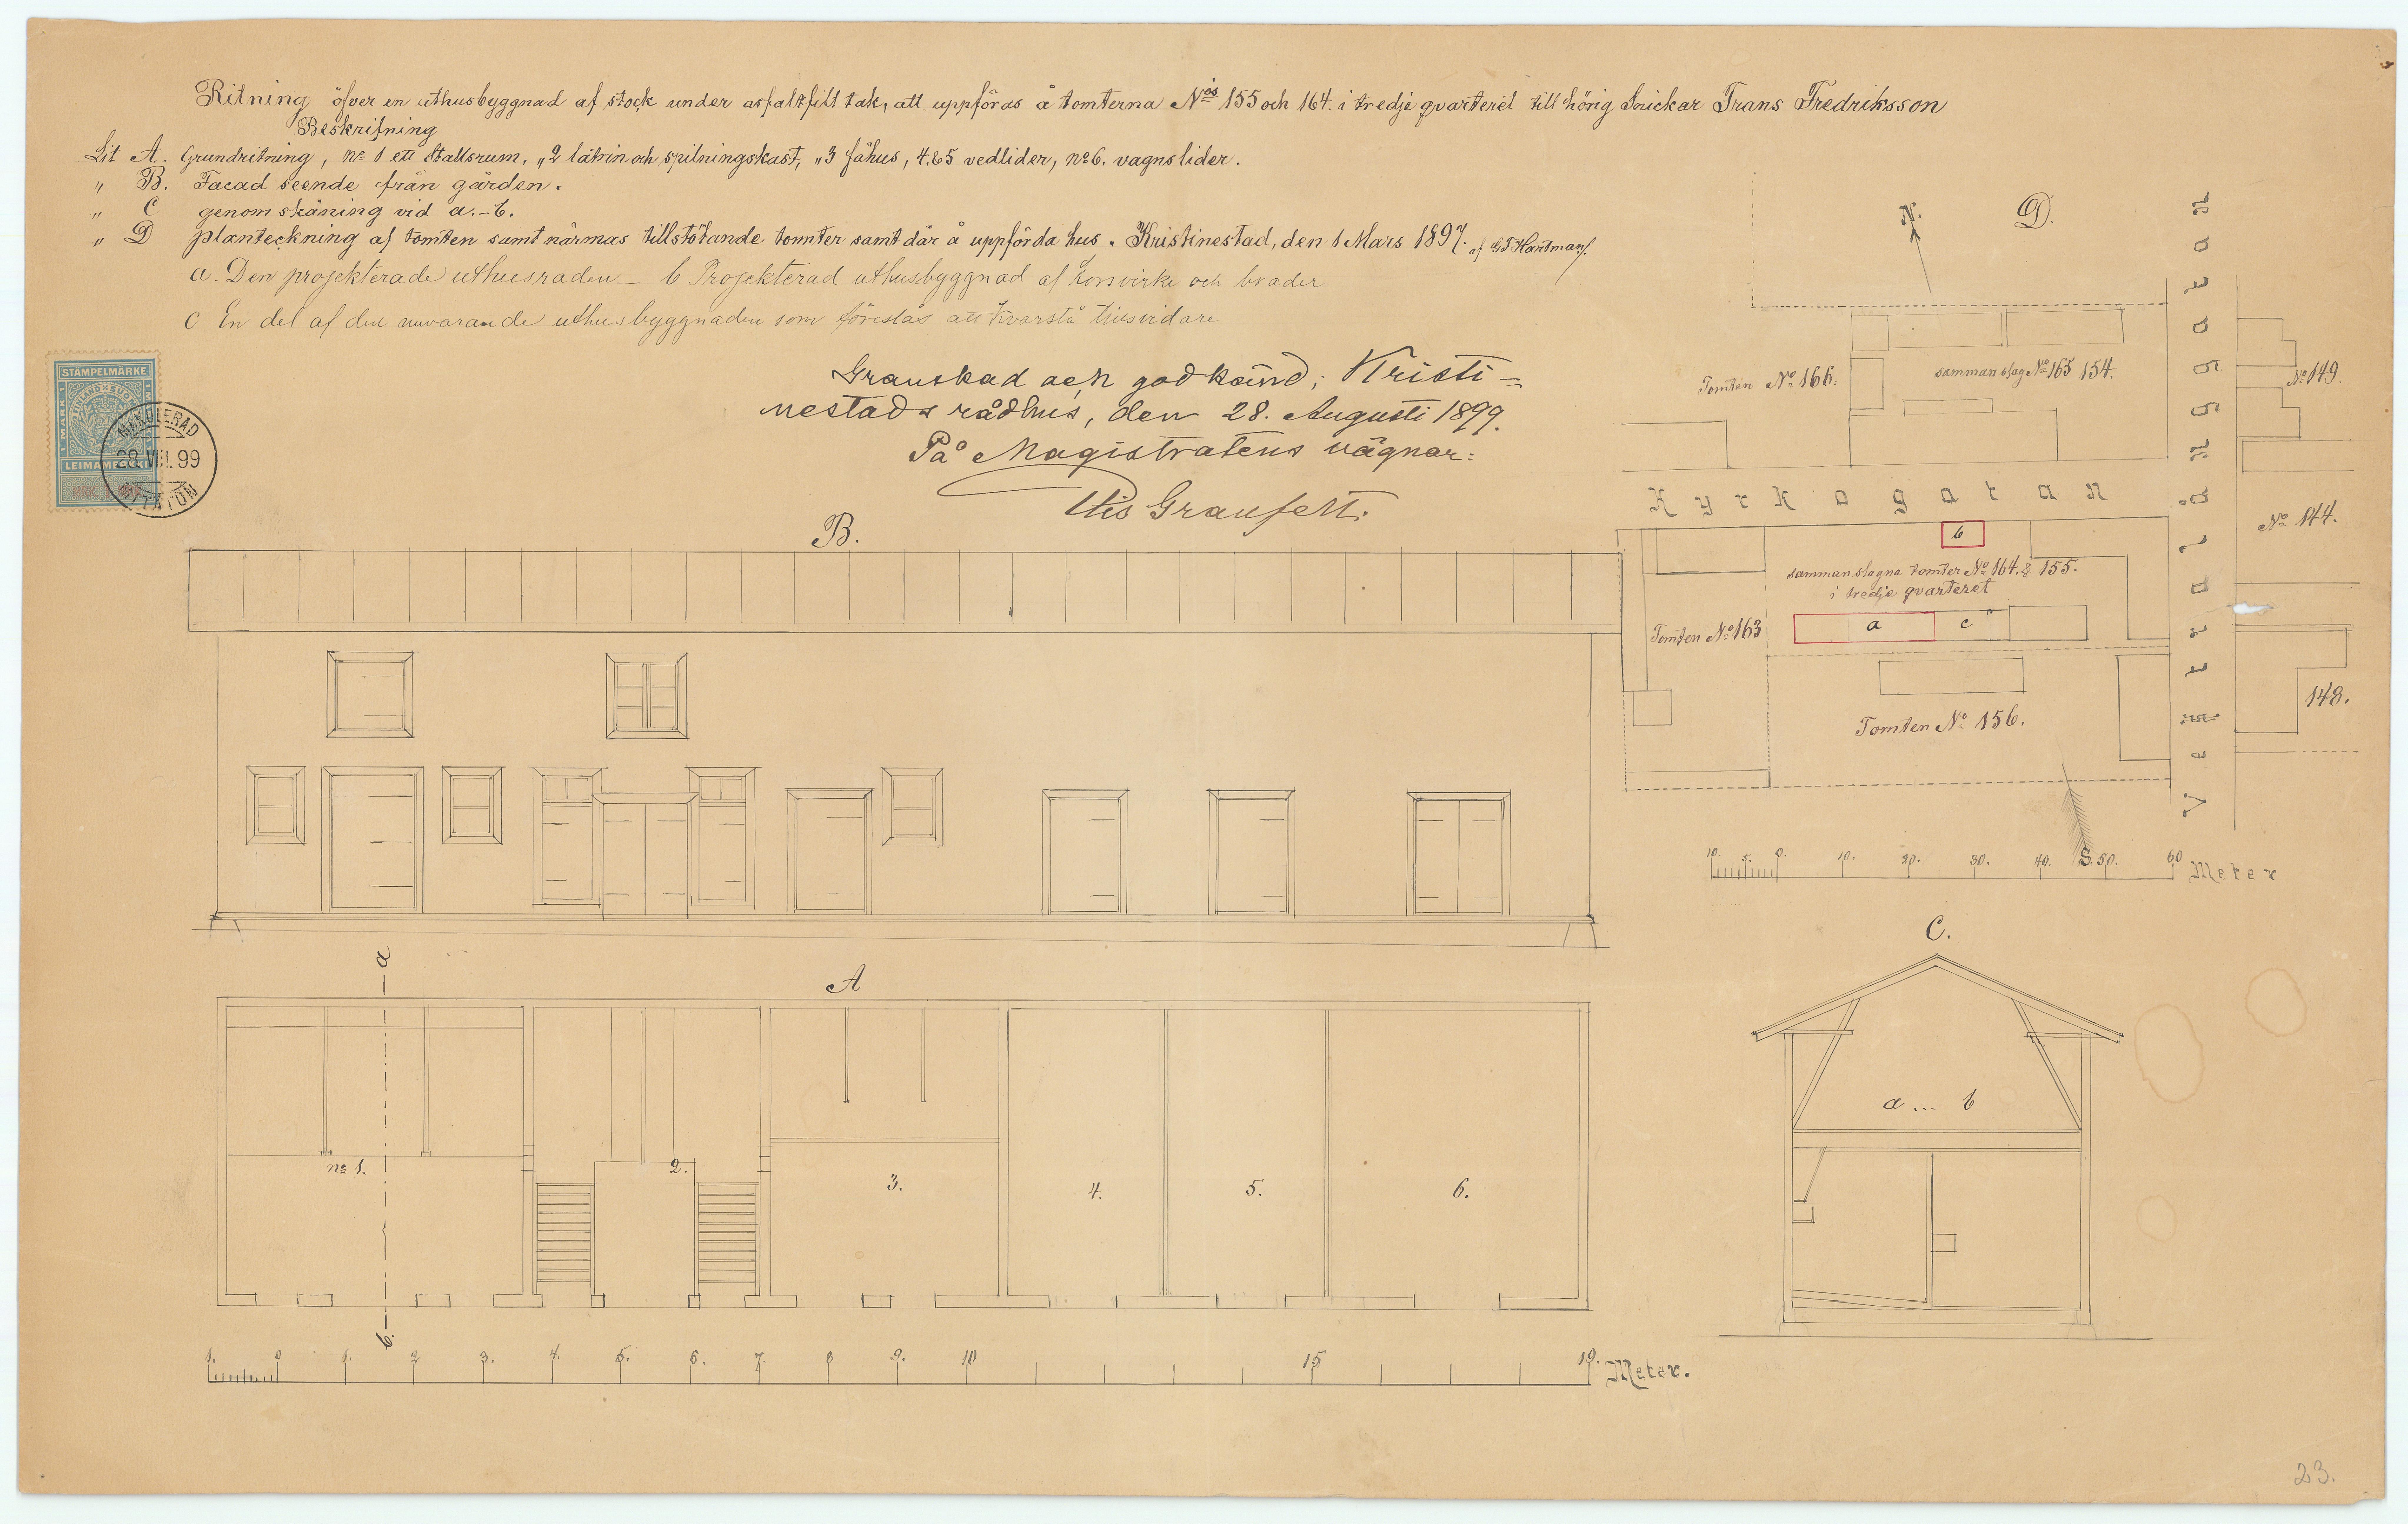 Ritning öfver en uthusbyggnad af stock under asfaltfilt tak, att uppföras å tomterna Nois 155 och 164. i tredje qvarteret till hörig Snickar Frans Fredriksson
Beskrifning
Lit A. Grundritning, No 1 ett Stallsrum, „ 2 latrin och spilningskast, „ 3 fähus, 4, & 5 vedlider, no 6. vagnslider.
„ B. Facad seende från gården.
„ C genom skäning vid a.-b.
„ D planteckning af tomten samt närmas tillstötande tomnter samt där å uppförda hus. Kristinestad, den 1 Mars 1897. af G J Hartman
a. Den projekterade uthusraden— b Projekterad uthusbyggnad af korsvirke och bräder
c En del af den nuvarande uthusbyggnaden som föreslås att kvarstå tillsvidare
STÄMPELMÄRKE
1 MARK 1
FINLAND SUOMI
LEIMAMERKKI
MAKULERAD
28.VIII.99
MITÄTÖN
Granskad och godkänd; Kristi=
nestads rådhus, den 28. Augusti 1899.
På Magistratens vägnar:
D.
N.
Tomten No 166.
samman slag No 165 154.
No 149.
Kyrkogatan
No 144.
b
samman slagna tomter No 164. & 155.
i tredje qvarteret
Tomten No 163
a
c
148.
Tomten No 156.
S.
10. 5. 0. 10. 20. 30. 40. 50. 60 Meter
B.
A
a
no 1.
2.
3.
4.
5.
6.
b.
1. 0 1. 2 3. 4. 5. 6. 7. 8 9. 10 15 19. Meter.
C.
a ... b
23.